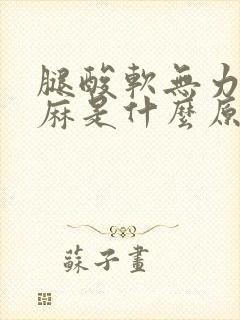 腿酸軟無力
麻是什麼原
蘇子畫